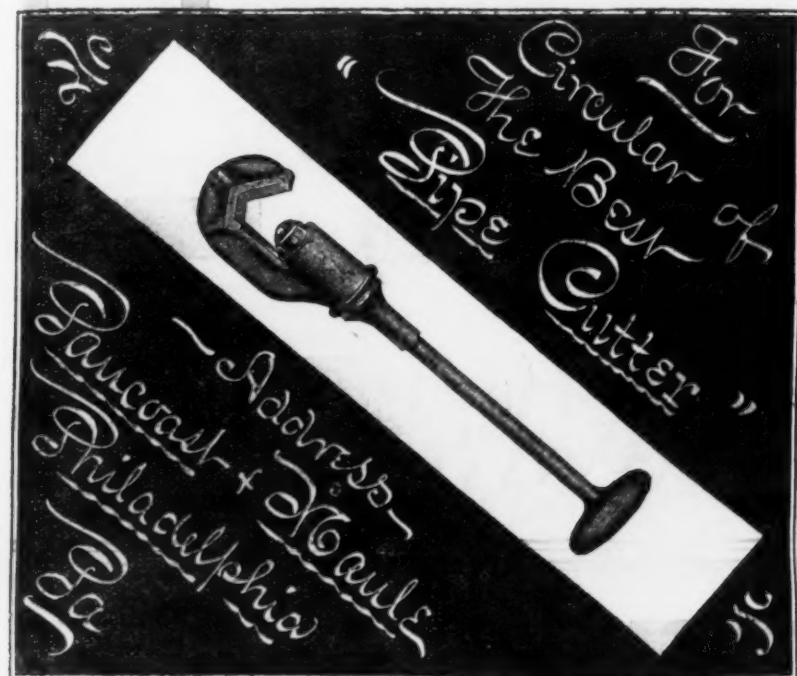 For
Circular of
The Best
" Pipe Cutter "
- Address -
Pancoast & Maule
Philadelphia
Pa